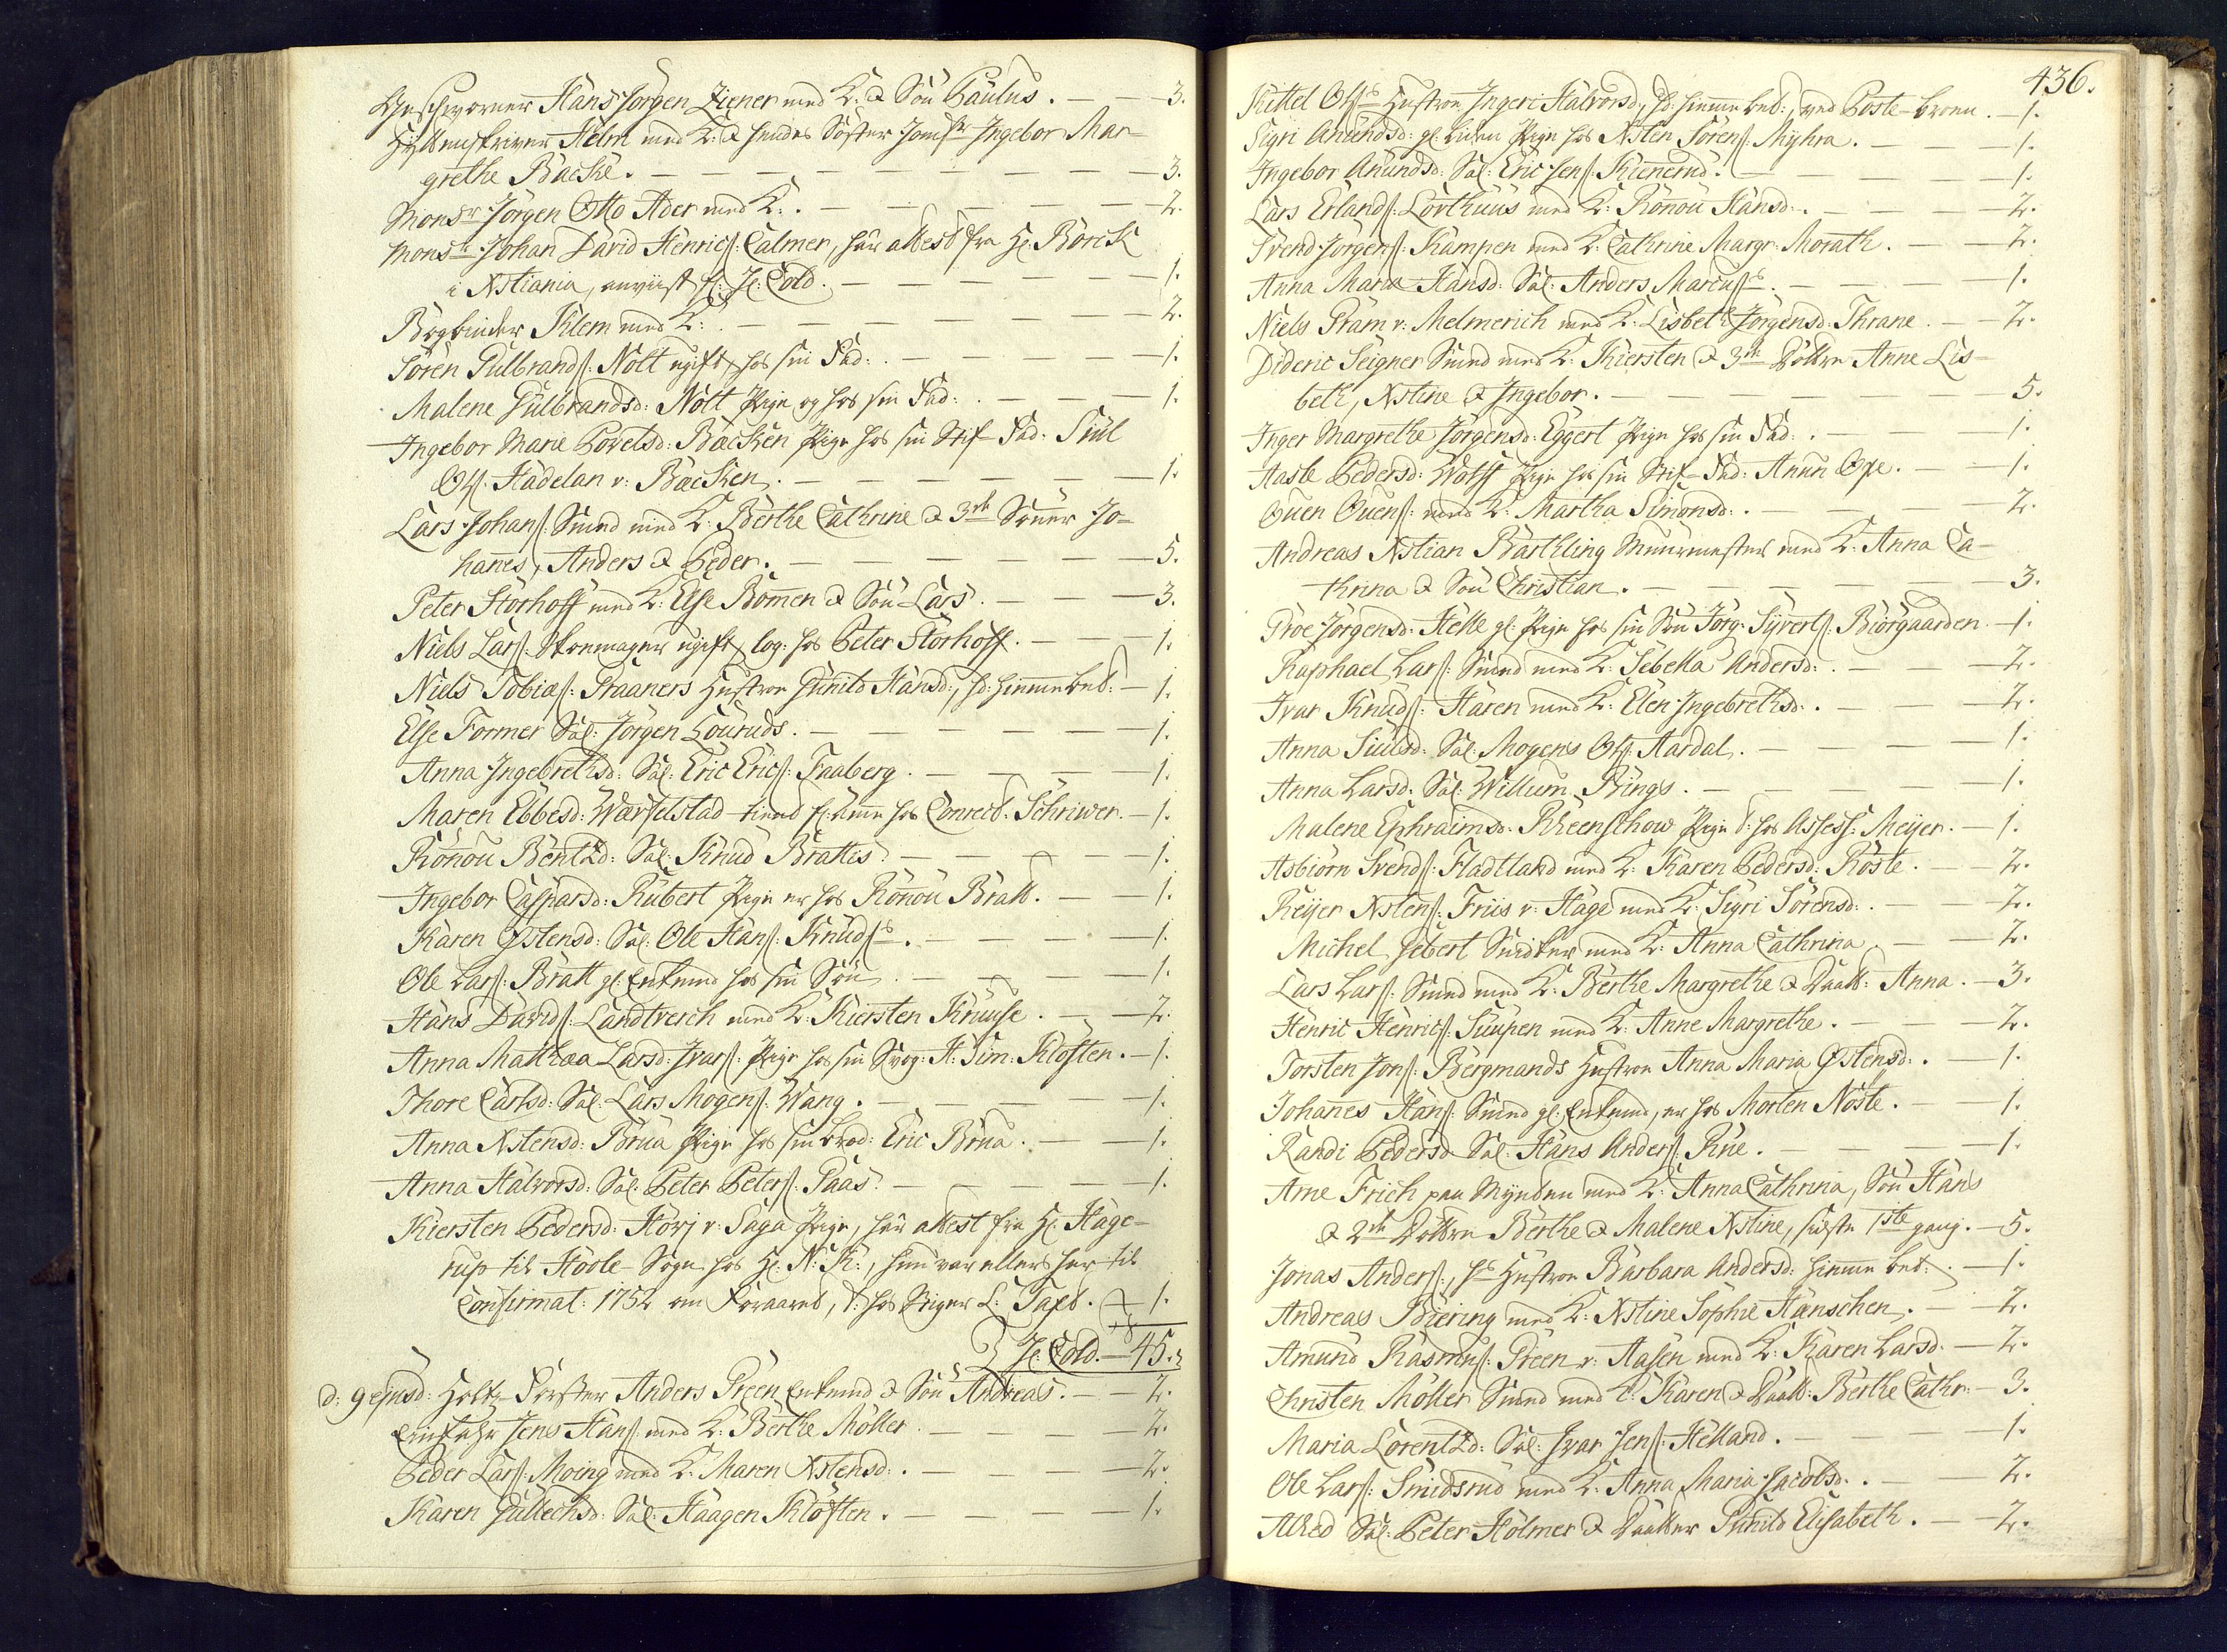 Geschworner Hans Jörgen Ziener med K: & Sön Paulus. — 3.
Hÿttenskriver Helm med K: & hendes Söster Jomfr Ingebor Mar-
grethe Backe. — 3.
Monsr Jörgen Otto Ader med K: — 2.
Monsr Johan David Henrics: Calmer, har attest fra Hr. Börck
i Xstiania, anviist Hr: Cold. — 1.
Bogbinder Klem med K: — 2.
Sören Gulbrands: Nott ugift, hos sin Fad: — 1.
Malene Gulbrandsd: Nott Pige og hos sin Fad: — 1.
Ingebor Marie Povelsd: Backen Pige hos sin Stif-Fad: Siul
Ols: Hadelan v: Backen. — 1.
Lars Johans: Smed med K: Berthe Cathrine & 3de Sönner Jo-
hannes, Anders & Peder. — 5.
Peter Storhoff med K: Else Rommen & Sön Lars. — 3.
Niels Lars: Skoemager ugift, log: hos Peter Storhoff. — 1.
Niels Tobias: Praaners Hustroe Gunild Hansd:, hd: hiemme ber: — 1.
Else Former Sal: Jörgen Louruds. — 1.
Anna Ingebrethsd: Sal: Eric Erics: Faaberg. — 1.
Maren Ebbesd: Warselstad tiend hos Conrect: Schriwer. — 1.
Rönnou Bentzd: Sal: Knud Brattes. — 1.
Ingebor Caspersd: Rubert Pige er hos Rönnou Bratt. — 1.
Karen Østensd: Sal: Ole Hans: Knuds. — 1.
Ole Lars: Bratt gl: Enkmd hos sin Sön — 1.
Hans Davids: Landtverch med K: Kiersten Knuse. — 2.
Anna Mathæa Larsd: Ivars: Pige hos sin Svog: H: Sim: Kloften. — 1.
Thore Carlsd: Sal: Lars Mogens: Wang. — 1.
Anna Xstensd: Brua Pige hos sin Brod: Eric Brua. — 1.
Anna Halvorsd: Sal: Peter Peters: Paas. — 1.
Kiersten Pedersd: Hovj v: Saga Pige, har attest fra Hr. Hage-
rup til Hoole-Sogn hos Hr. N: K:, hun var ellers her til
Confirmat: 1752 om Foraaret, t: hos Viger L: Taxt. — 1.
Hr: Cold. — 45.
d: 9 ejusd: Holtz-Förster Anders Preen Enkmd & Sön Andreas. — 2.
Einfahr Jens Hans: med K: Berthe Möller — 2.
Peder Lars: Moing med K: Maren Xstensd: — 2.
Karen Gullechsd: Sal: Haagen Klöften. — 1.
436.
Kittel Ols: Hustroe Ingeri Halvorsd, hd: hiemme ber:, ved Poste-broen. — 1.
Sigri Anundsd: gl: Pige hos Xsten Sörens: Myhra. — 1.
Ingebor Anundsd: Sal: Eric Jens: Kiennerud. — 1.
Lars Erlands: Lorthuus med K: Rönnou Hansd: — 2.
Svend Jörgens: Kampen med K: Cathrine Margr: Morath. — 2.
Anna Maria Hansd: Sal: Anders Marcus: — 1.
Niels Pram v: Melmerich med K: Lisbeth Jörgensd: Thrane. — 2.
Dideric Seigner Smed med K: Kiersten & 3de Döttre Anne Lis-
beth, Xstine & Ingebor. — 5.
Inger Margrethe Jörgensd: Eggert Pige hos sin Fad: — 1.
Aasle Pedersd: Wolff Pige hos sin Stif-Fad: Anun Oxe. — 1.
Ouen Ouens: med K: Martha Simonsd: — 2.
Andreas Xstian Barthling Muurmester med K: Anna Ca-
thrina & Sön Christian. — 3.
Groe Jörgensd: Helle gl: Pige hos sin Sön Jörg: Syverts: Biörgaarden. — 1.
Raphael Lars: Smed med K: Sebella Andersd: — 2.
Ivar Knuds: Haren med K: Elen Ingebrethsd: — 2.
Anna Siulsd: Sal: Mogens Ols: Aardal. — 1.
Anna Larsd: Sal: Willum Rings. — 1.
Malene Ephraimsd: Rheenschow Pige t: hos Assess: Meijer. — 1.
Asbiörn Svends: Fladtland med K: Karen Pedersd: Roste. — 2.
Reijer Xstens: Friis v: Hage med K: Sigri Sörensd: — 2.
Michel Gebert Snidker med K: Anna Cathrina. — 2.
Lars Lars: Smed med K: Berthe Margrethe & Daatt: Anna. — 3.
Henric Henrics: Suupen med K: Anne Margrethe. — 2.
Torsten Jons: Bergmands Hustroe Anna Maria Østensd: — 1.
Johanes Hans: Smed gl: Enkmd, er hos Morten Noste. — 1.
Randi Pedersd: Sal: Hans Anders: Rue. — 1.
Arne Frich paa Mynten med K: Anna Cathrina, Sön Hans
& 2de Döttre Berthe & Malene Xstine, sidste 1ste gang. — 5.
Jonas Anders:, hs Hustroe Barbara Andersd: hiemme ber: — 1.
Andreas Biering med K: Xstine Sophie Hanschen. — 2.
Amund Rasmus: Preen v: Aasen med K: Karen Larsd: — 2.
Christen Möller Smed med K: Karen & Daatt: Berthe Cathr: — 3.
Maria Lorentzd: Sal: Ivar Jens: Helland. — 1.
Ole Lars: Smidsrud med K: Anna Maria Jacobsd: — 2.
Alhed Sal: Peter Holmer & Daatter Gunild Elisabeth. — 2.